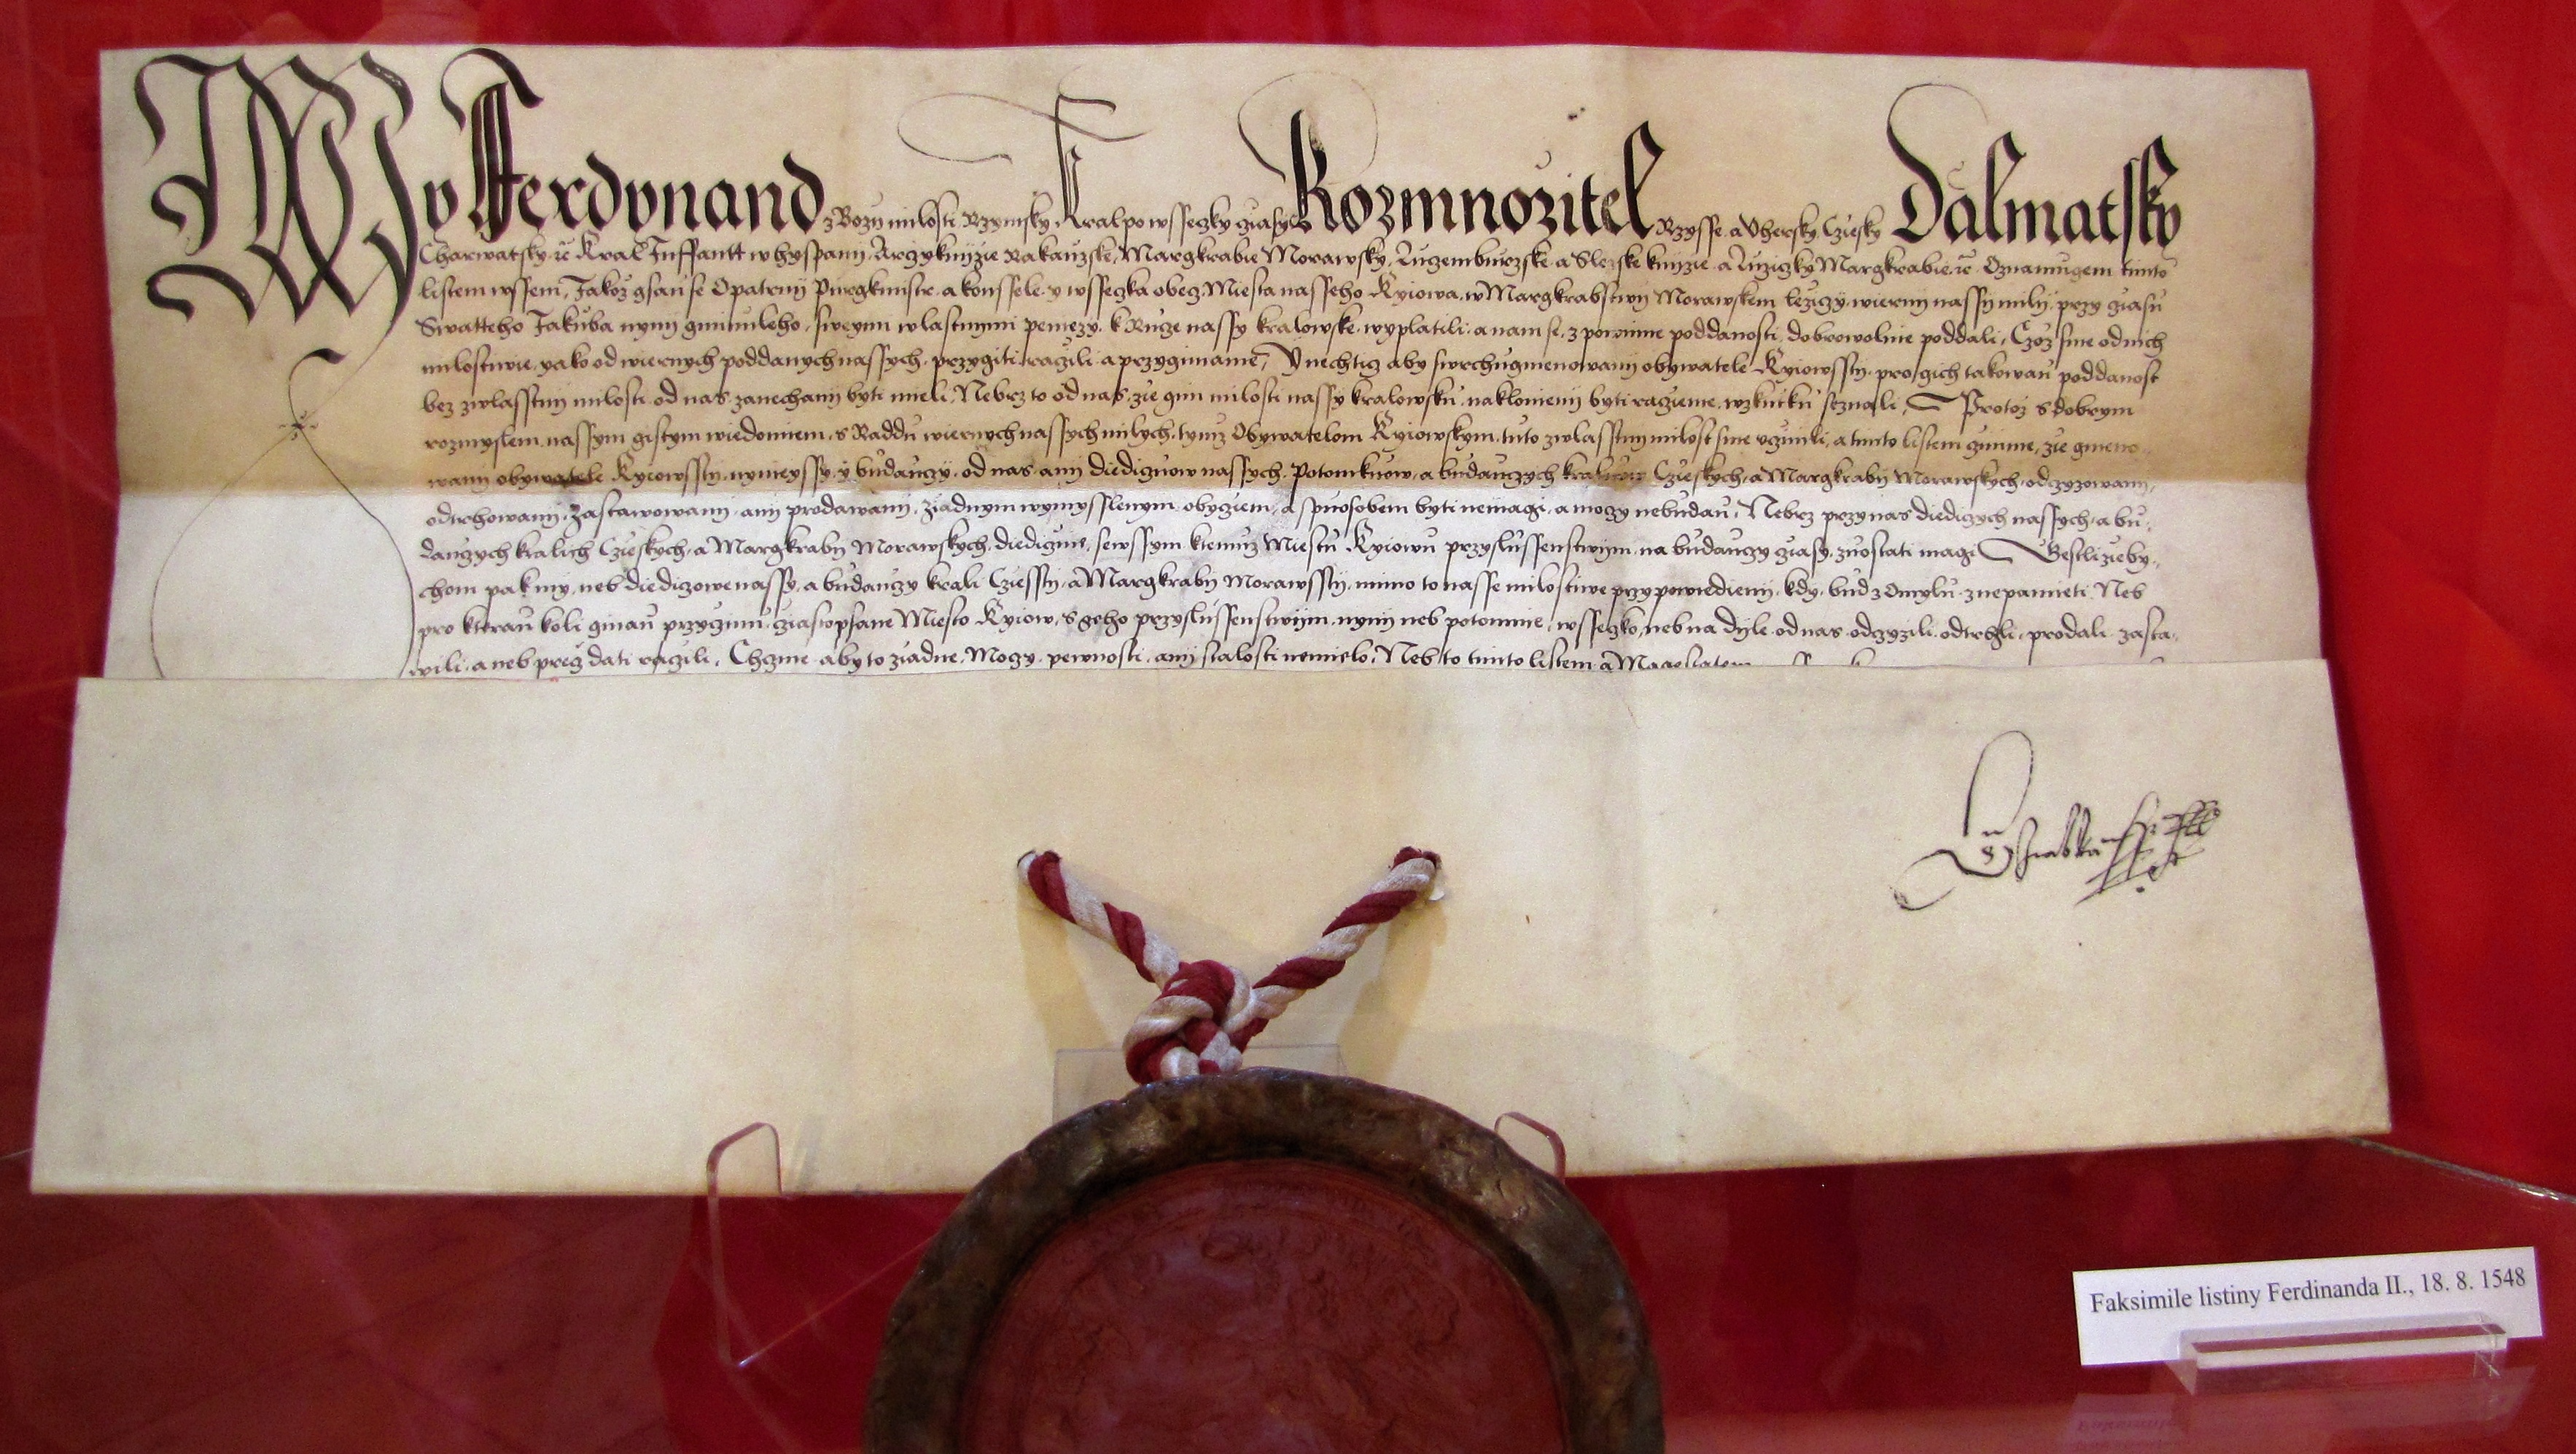 My Fferdynand z Bozy milosti Rzymsky Kral po wsseczky czasy Rozmnozitel Rzysse a Uhersky Czesky Dalmatsky
Charwatsky ꝛc Kral Inffantt w hyspanij, Arczyknijze Rakauzske, Margkrabie Morawsky, Luczemburzske a Slezske knijze a Luziczky Margkrabie ꝛc Oznamugem timto
listem wssem, Jakoz gsau se Opatrnij Purgkmistr a konssele y wsseczka obecz Miesta nasseho Kyiowa, w Margkrabstwij Morawskem lezyczy, wiernij nassy milij, przy czasu
Swatteho Jakuba nynij gminuleho, sweymi wlastnymi penezy, k Rucze nassy kralowske, wyplatili, a nam se, z powinne poddanosti, dobrowolnie poddali, Czoz sme od nich
milostiwie, yako od wiernych poddanych nassych, przygiti raczili a przygimame, Y nechticz aby swrchugmenowanij obywatele Kyiowsstij, pro gich takowau poddanost
bez zwlasstnij milosti od nas zanechanij byti mieli, Nebrz to od nas, zie gim milosti nassy kralowsku naklonienij byti raczime, wskutku seznali, Protoz s dobrym
rozmyslem, nassym gistym wiedomiem, s Raddu wiernych nassych milych, tymz Obywatelom Kyiowskym, tuto zwlasstnij milost sme uczinili, a timto listem czinime, zie gmeno
wanij obywatele Kyiowsstij, nynieyssy y budauczy, od nas anij diediczuow nassych, Potomkuow, a budauczych kraluow Czieskych, a Margkrabij Morawskych, odczyzowanij,
odtrhowanij, Zastawowanij, anij prodawanij, ziadnym wymysslenym obyczem, a spuosobem byti nemagi, a moczy nebudau, Nebrz przy nas diediczych nassych, a bu
dauczych kralich Czieskych, a Margkrabij Morawskych, diediczne, se wssym ktemuz Miestu Kyiowu przyslussenstwijm, na budauczy czasy, zuostati magi Gestlizie by
chom pak my, neb dieediczowe nassy, a budauczy krali Cziesstij, a Margkrabij Morawsstij, mimo to nasse milostiwe przypowiedienij, kdy, bud z Omylu, z nepamieti, Neb
pro kterau koli ginau przyczinu, cziastopsane Miesto Kyiow, s geho przyslussenstwijm, nynij neb potomnie, wsseczko, neb na dijle od nas odczyzili, odtrhli, prodali, zasta
wili, a neb precz dati raczili, Chczme aby to ziadne Moczy, pewnosti, anij stalosti nemielo, Neb to timto listem a
Faksimile listiny Ferdinanda II., 18. 8. 1548